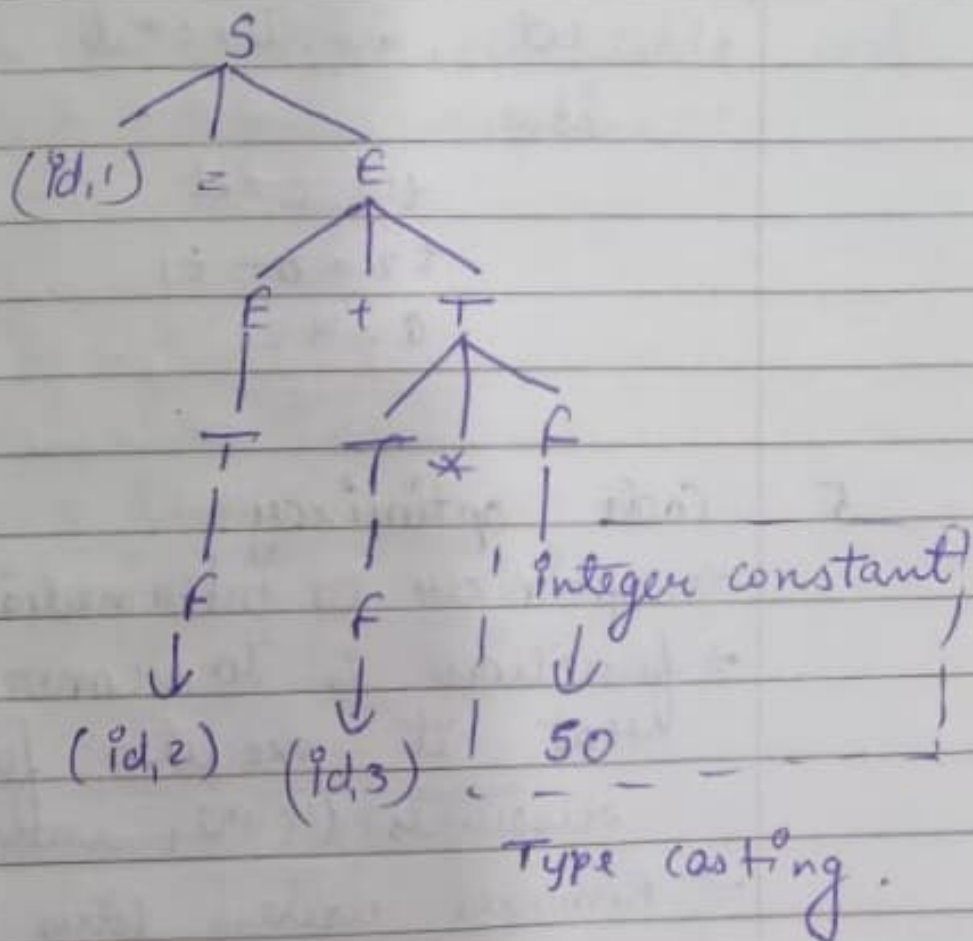 S
(id,1) = E
E + T
T T * F
F F integer constant
(id,2) (id,3) 50
Type casting.